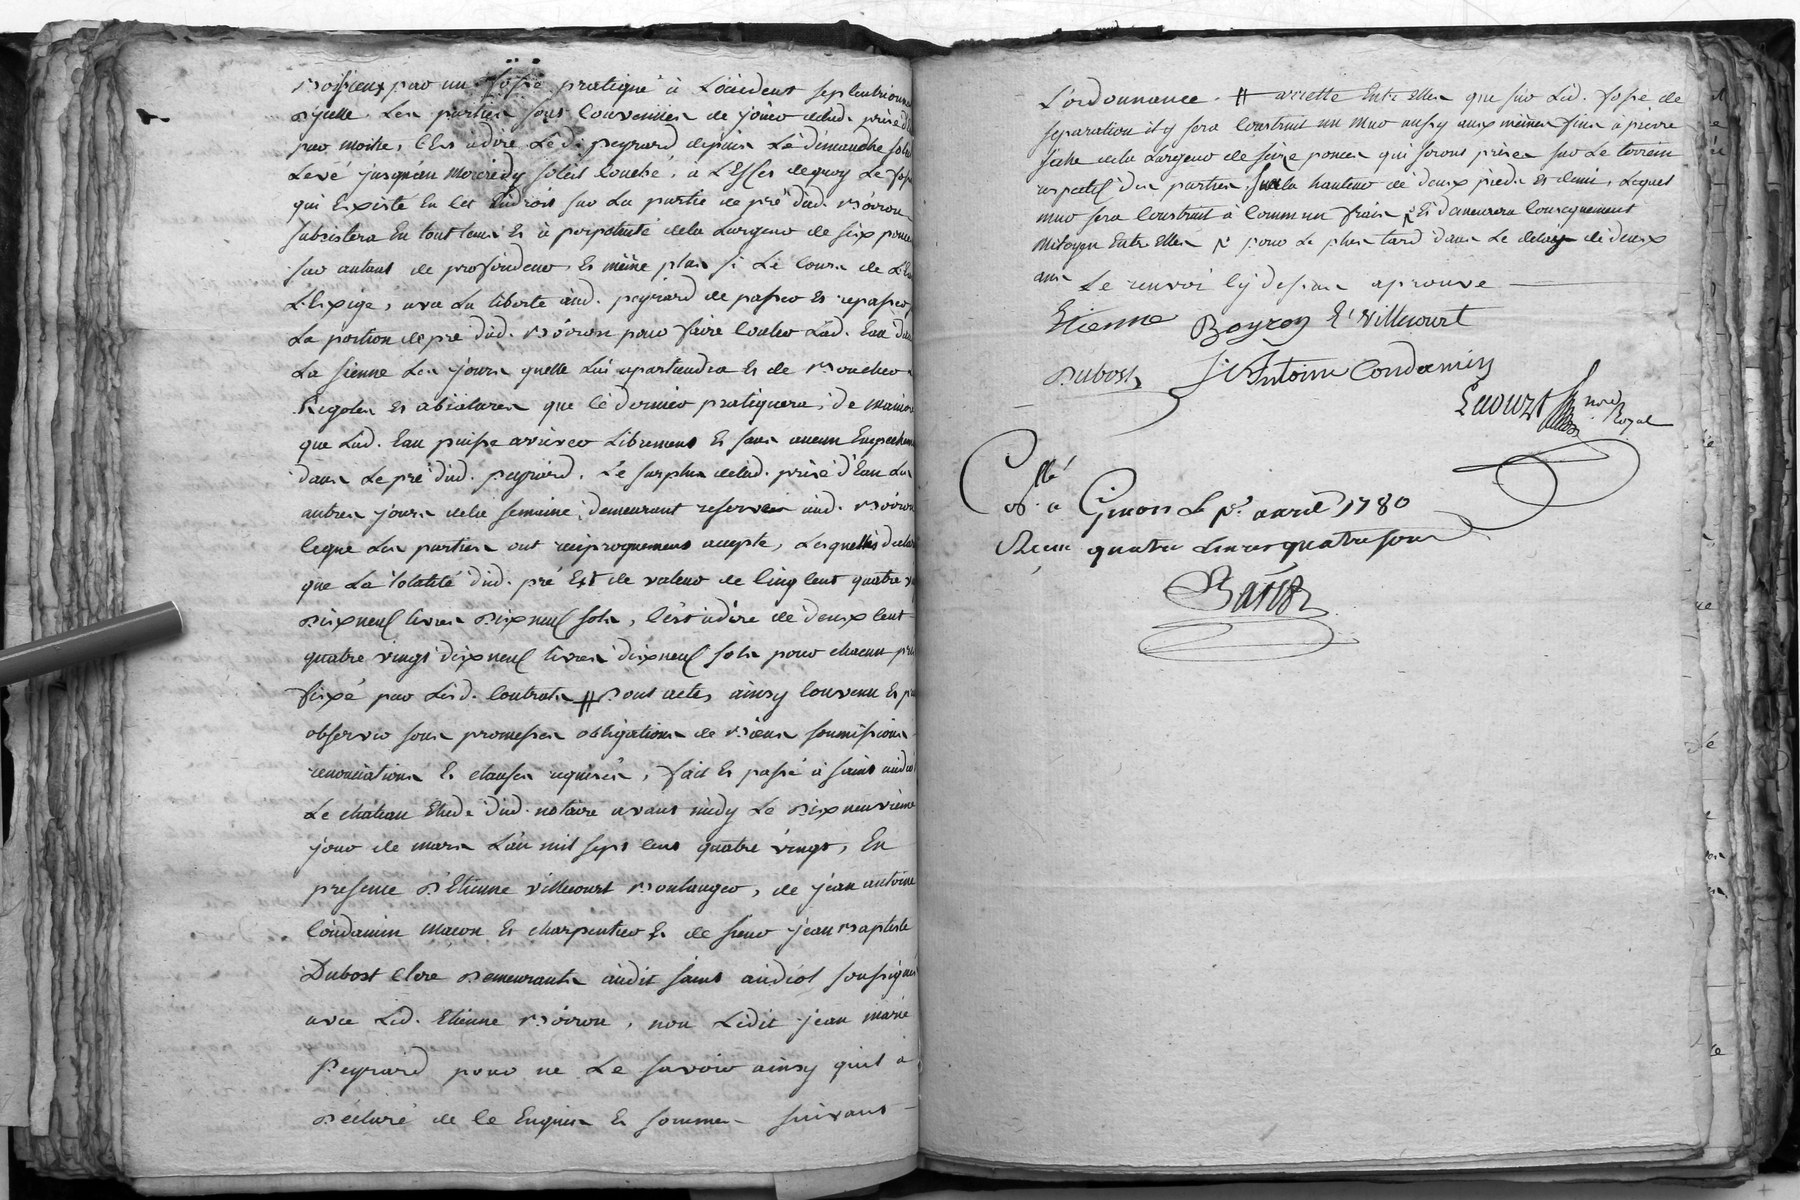 par un fossé pratiqué à L'occident septentrional
d'Jcelle. Les parties sont Convenües de joüir delad. prise d'
par moitié, C'Est adire Led. peyrard depuis Le démanche soleil
Levé jusqu'au mercredy soleil Couché, a L'Effet dequoy Le fossé
qui Existe En Cet Endroit sur La partie de pré dud. Boiron
subsistera En tout tems Et à perpetuité dela Largeur de six pouces
sur autant de profondeur, Et même plus si Le Cours de L'Eau
L'Exige, avec La liberté aud. peyrard de passer Et repasser
La portion depré dud. Boiron pour faire Couler Lad. Eau dans
La sienne Les jours quelle Lui apartiendra Et de Boucher
Rigoles Et abialures que Ce dernier pratiquera, de maniere
que Lad. Eau puisse arriver Librement Et sans aucun Empechement
dans Le pré dud. peyrard. Le surplus delad. prise d'Eau Les
autres jours dela semaine, demeurant reservée aud. Boiron
ceque Les parties ont reciproquement accepté, Lesquelles declarent
que La totalité dud. pré Est de valeur de Cinq Cent quatre vingt
Dixneuf livres Dixneuf sols, C'est adire de deux Cent
quatre vingt dixneuf livres dixneuf sols pour chacun prix
fixé par Lesd. Contrats # Dont acte, ainsy Convenu Et p
observer sous promesses obligations de Biens soumissions
renonciations Et clauses requises, fait Et passé à saint andéol
Le chateau Etude dud. notaire avant midy Le Dixneuvieme
jour de mars L'an mil sept Cent quatre vingt, En
presence D'Etienne Villecourt Boulanger, de jean antoine
Condamin macon Et charpentier Et de sieur jean Baptiste
Dubost Clerc Demeurants audit saint andéol soussignés
avec Led. Etienne Boiron, non Ledit jean marie
Peyrard pour ne Le savoir ainsy quil a
Déclaré de Ce Enquis Et sommé suivant
L'ordonnance. # arretté Entr'Elles que sur Led. fossé de
separation il y sera Construit un mur aussy aux mêmes fins a pierre
séche dela Largeur de seize pouces qui seront prises sur Le terrein
respectif des parties, sur la hauteur de deux pieds Et demi, Lequel
mur sera Construit à Commun frais Et demeurera Consequement
Mitoyen Entr'Elles pour Le plus tard dans Le delay de deux
ans Le renvoi Cy dessus aprouvé
Etienne Boyron E. Villecourt
Dubost J. Antoine Condamin
nore. Royal
Collé
Con. a Givors Le pr. avril 1780
Recu quatre Livres quatre sous